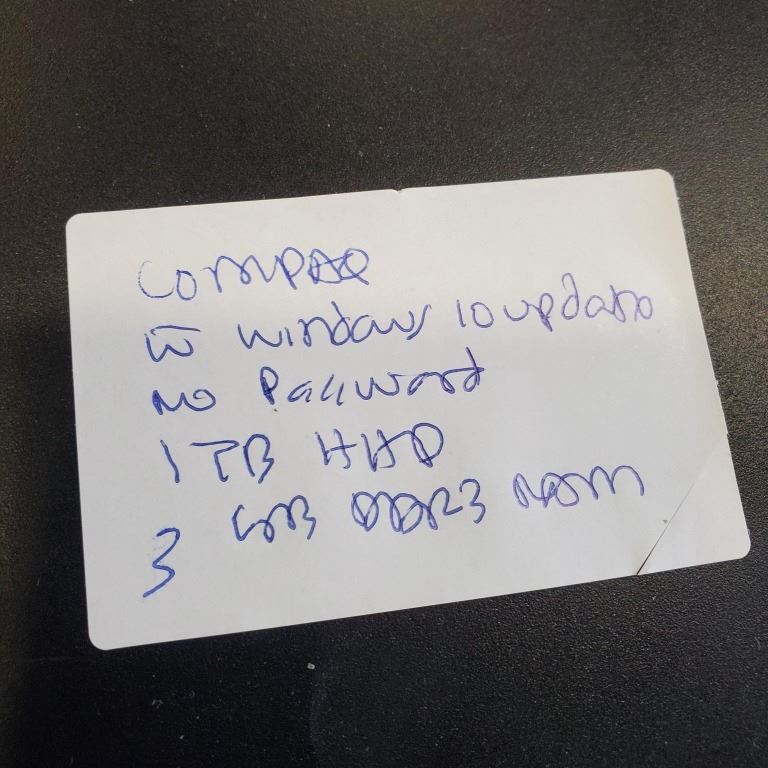 COMPAQ
W Windows 10 update
NO Password
1 TB HHD
3 GB DDR3 RAM